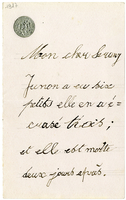 Mon cher
Junon a eu six
petits elle en a é-
crasé trois ;
et elle est morte
deux jours après.